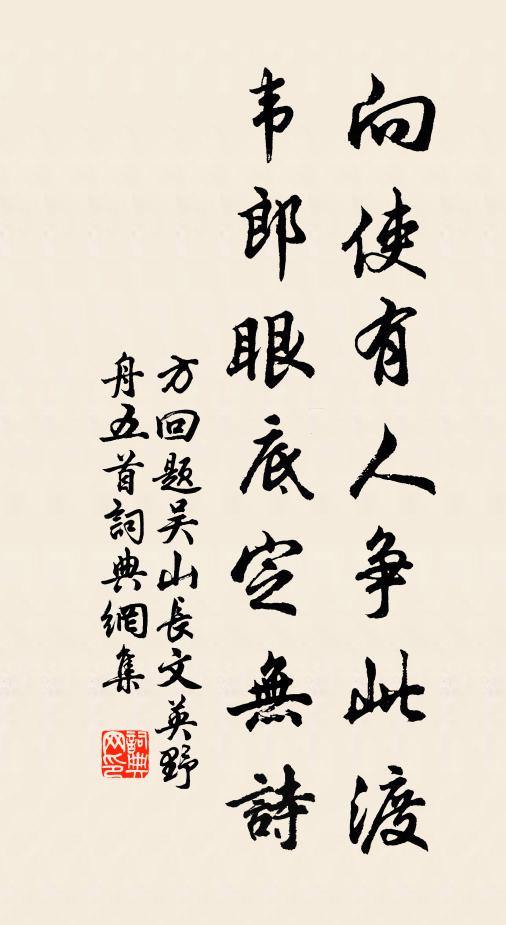 向使有人争此渡
韦郎眼底定無詩
方回题吴山長文英野
舟五首詞典網集
詞典
网印